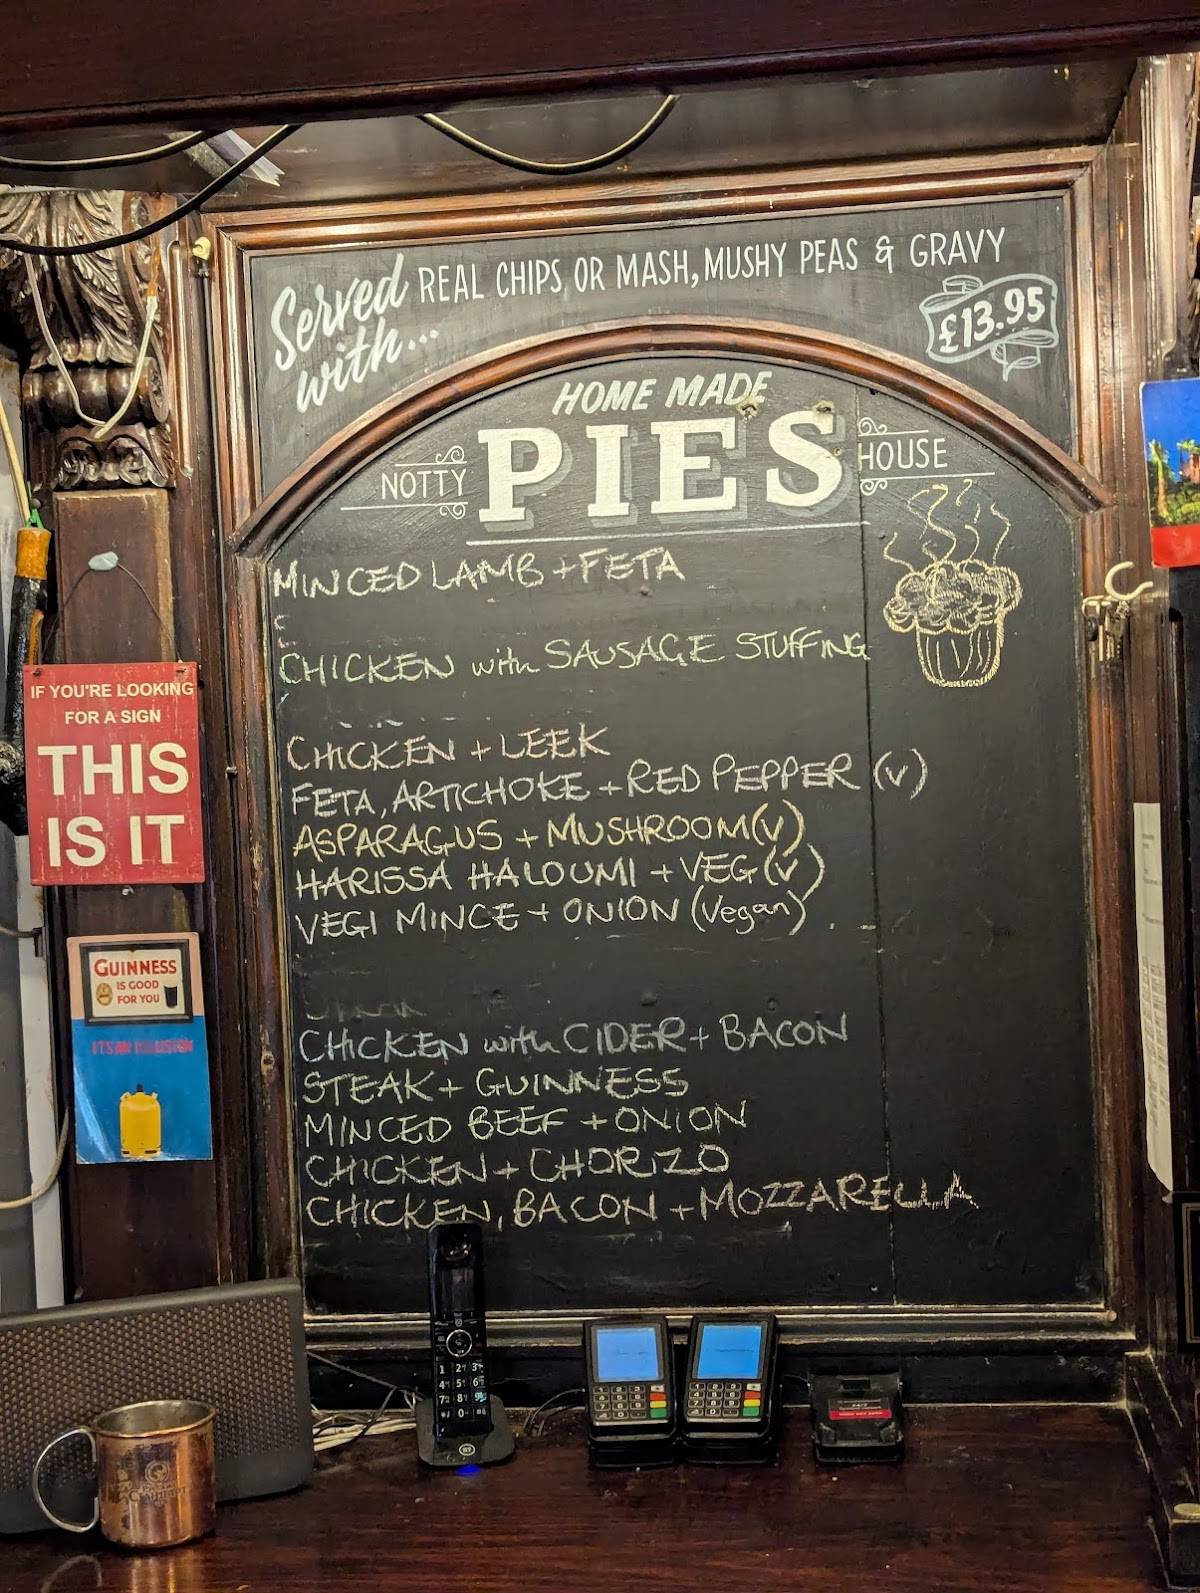 Served with... REAL CHIPS OR MASH, MUSHY PEAS & GRAVY
£13.95
HOME MADE
NOTTY PIES HOUSE
MINCED LAMB + FETA
CHICKEN with SAUSAGE STUFFING
CHICKEN + LEEK
FETA, ARTICHOKE + RED PEPPER (V)
ASPARAGUS + MUSHROOM (V)
HARISSA HALOUMI + VEG (V)
VEGI MINCE + ONION (Vegan)
CHICKEN with CIDER + BACON
STEAK + GUINNESS
MINCED BEEF + ONION
CHICKEN + CHORIZO
CHICKEN, BACON + MOZZARELLA
IF YOU'RE LOOKING
FOR A SIGN
THIS
IS IT
GUINNESS
IS GOOD
FOR YOU